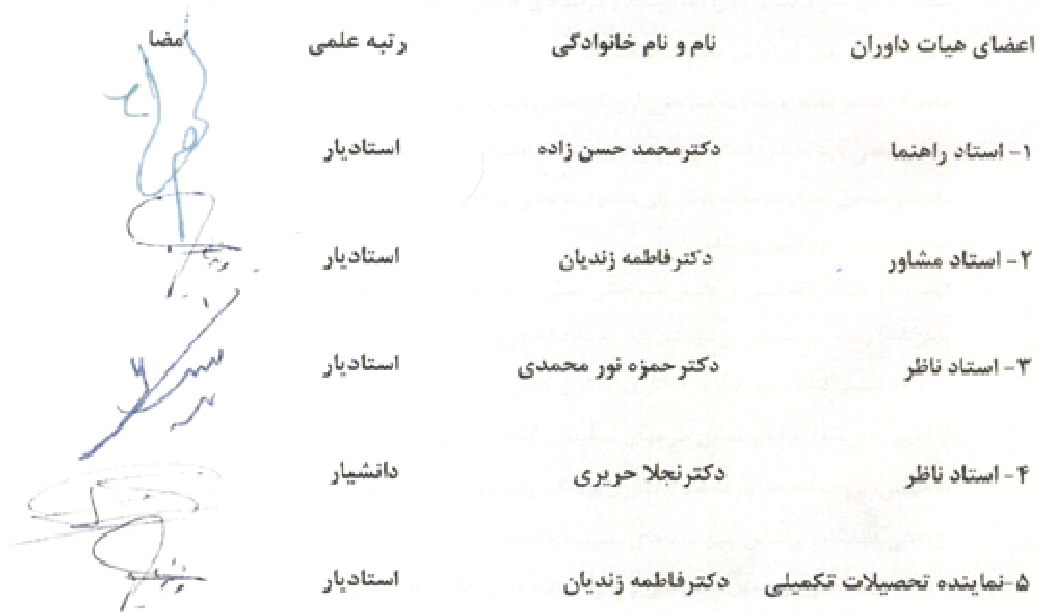 اعضای هیات داوران نام و نام خانوادگی رتبه علمی امضا
۱- استاد راهنما دکترمحمد حسن زاده استادیار
۲- استاد مشاور دکترفاطمه زندیان استادیار
۳- استاد ناظر دکترحمزه نور محمدی استادیار
۴- استاد ناظر دکترنجلا حریری دانشیار
۵-نماینده تحصیلات تکمیلی دکترفاطمه زندیان استادیار